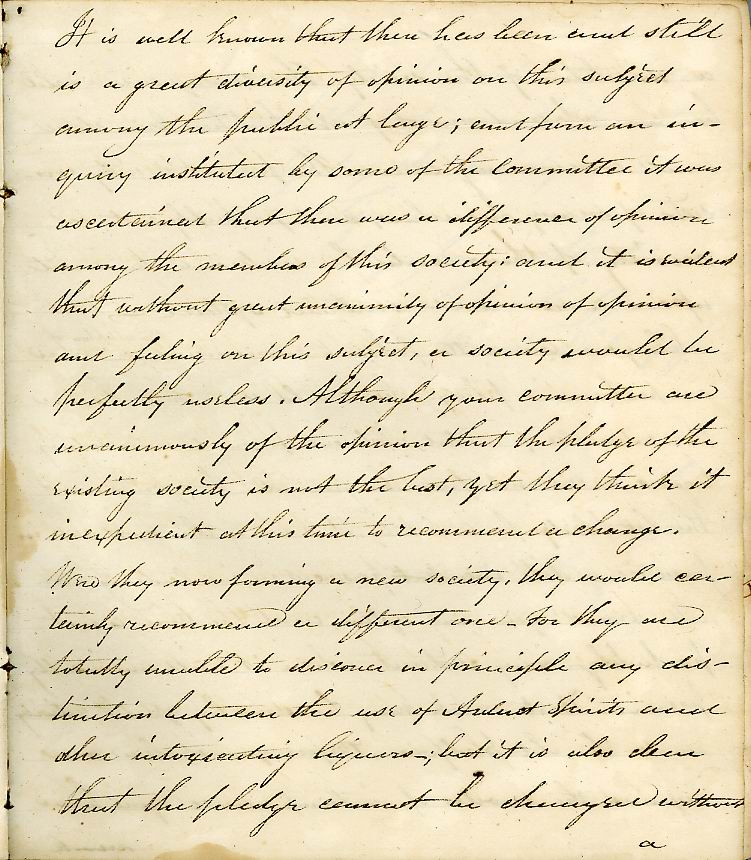 It is well known that there has been and still
is a great diversity of opinion on this subject
among the public at large; and from an in-
quiry instituted by some of the committee it was
ascertained that there was a difference of opinion
among the members of this society: and it is evident
that without great unanimity of opinion of opinion
and feeling on this subject, a society would be
perfectly useless. Although your committee are
unanimously of the opinion that the pledge of the
existing society is not the best, yet they think it
inexpedient at this time to recommend a change.
Were they now forming a new society, they would cer-
tainly recommend a different one - for they are
totally unable to discover in principle any dis-
tinction between the use of Ardent Spirits and
other intoxicating liquors -; but it is also clear
that the pledge cannot be changed without
a